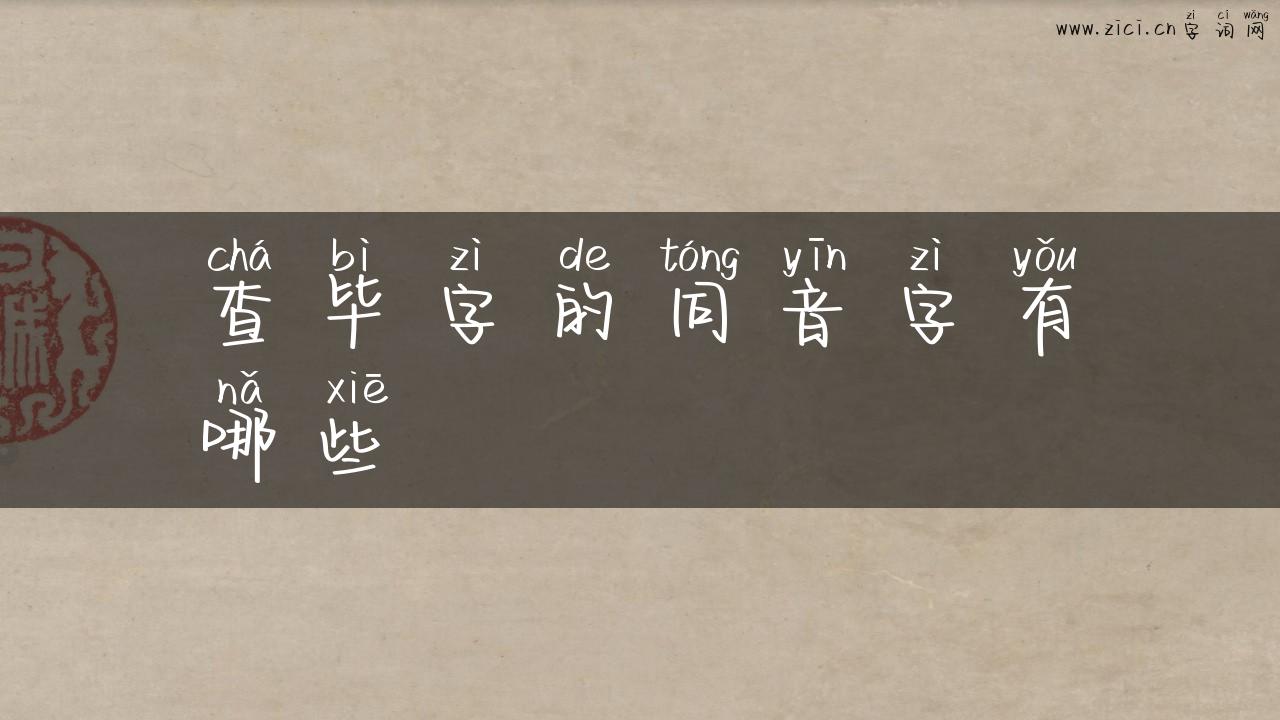 zì cí wǎng
www.zici.cn 字词网
chá bì zì de tóng yīn zì yǒu
查毕字的同音字有
nǎ xiē
哪些